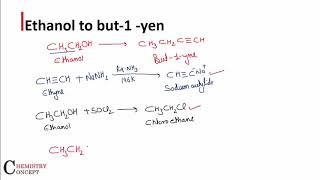 Ethanol to but-1 -yen
CH₃CH₂OH → CH₃CH₂C≡CH
Ethanol But-1-yne
CH≡CH + NaNH₂ Liq·NH₃ 196K → CH≡C̄Na⁺
Ethyne Sodium acetylide
CH₃CH₂OH + SOCl₂ → CH₃CH₂Cl ✓
Ethanol Chloroethane
CH₃CH₂
CHEMISTRY
CONCEPT